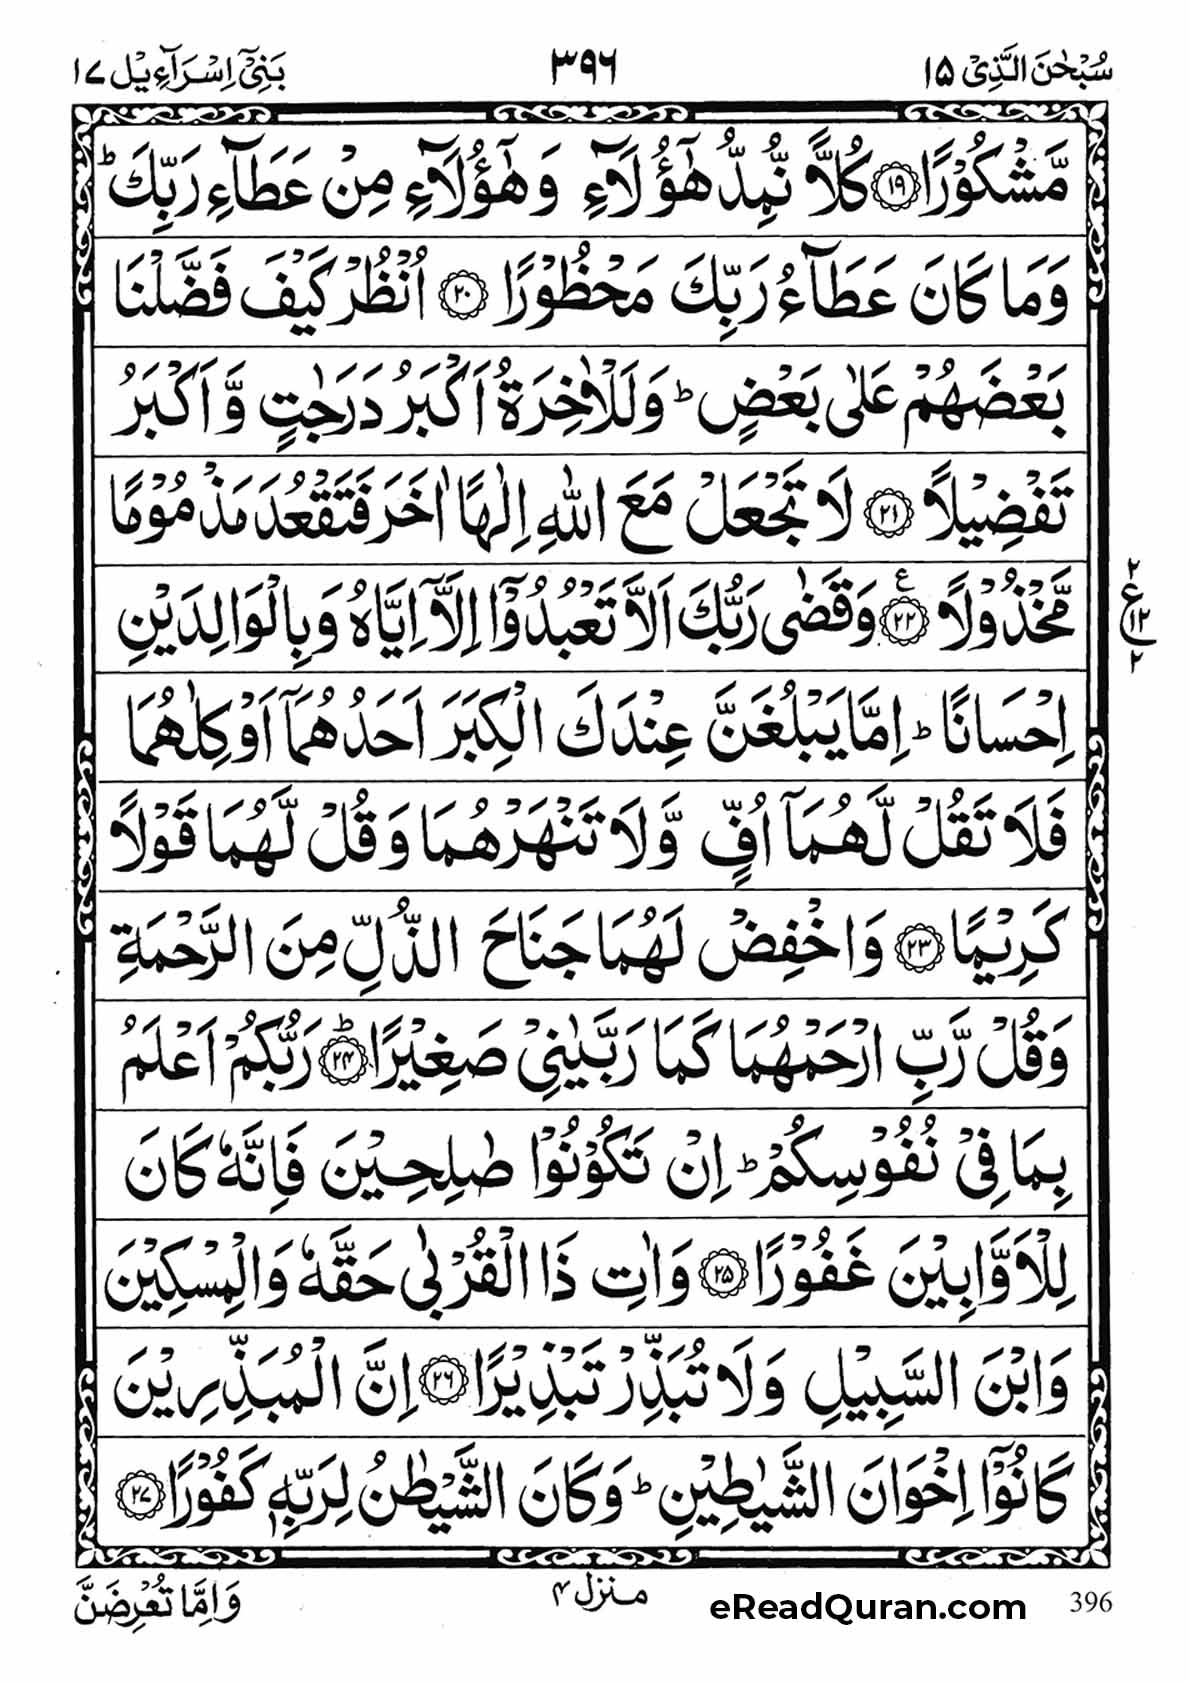 سُبْحٰنَ الَّذِیْۤ ۱۵
۳۹۶
بَنِیْۤ اِسْرَآءِیْل ۱۷
مَّشْكُوْرًا ۝۱۹ كُلًّا نُّمِدُّ هٰۤؤُلَآءِ وَ هٰۤؤُلَآءِ مِنْ عَطَآءِ رَبِّكَ ؕ
وَ مَا كَانَ عَطَآءُ رَبِّكَ مَحْظُوْرًا ۝۲۰ اُنْظُرْ كَیْفَ فَضَّلْنَا
بَعْضَهُمْ عَلٰی بَعْضٍ ؕ وَ لَلْاٰخِرَةُ اَكْبَرُ دَرَجٰتٍ وَّ اَكْبَرُ
تَفْضِیْلًا ۝۲۱ لَا تَجْعَلْ مَعَ اللّٰهِ اِلٰهًا اٰخَرَ فَتَقْعُدَ مَذْمُوْمًا
مَّخْذُوْلًا ۝۲۲ ع وَ قَضٰی رَبُّكَ اَلَّا تَعْبُدُوْۤا اِلَّاۤ اِیَّاهُ وَ بِالْوَالِدَیْنِ
۲
ع
۱۲
۲
اِحْسَانًا ؕ اِمَّا یَبْلُغَنَّ عِنْدَكَ الْكِبَرَ اَحَدُهُمَاۤ اَوْ كِلٰهُمَا
فَلَا تَقُلْ لَّهُمَاۤ اُفٍّ وَّ لَا تَنْهَرْهُمَا وَ قُلْ لَّهُمَا قَوْلًا
كَرِیْمًا ۝۲۳ وَ اخْفِضْ لَهُمَا جَنَاحَ الذُّلِّ مِنَ الرَّحْمَةِ
وَ قُلْ رَّبِّ ارْحَمْهُمَا كَمَا رَبَّیٰنِیْ صَغِیْرًا ؕ۝۲۴ رَبُّكُمْ اَعْلَمُ
بِمَا فِیْ نُفُوْسِكُمْ ؕ اِنْ تَكُوْنُوْا صٰلِحِیْنَ فَاِنَّهٗ كَانَ
لِلْاَوَّابِیْنَ غَفُوْرًا ۝۲۵ وَ اٰتِ ذَا الْقُرْبٰی حَقَّهٗ وَ الْمِسْكِیْنَ
وَ ابْنَ السَّبِیْلِ وَ لَا تُبَذِّرْ تَبْذِیْرًا ۝۲۶ اِنَّ الْمُبَذِّرِیْنَ
كَانُوْۤا اِخْوَانَ الشَّیٰطِیْنِ ؕ وَ كَانَ الشَّیْطٰنُ لِرَبِّهٖ كَفُوْرًا ۝۲۷
396
eReadQuran.com
منزل ۴
وَ اِمَّا تُعْرِضَنَّ